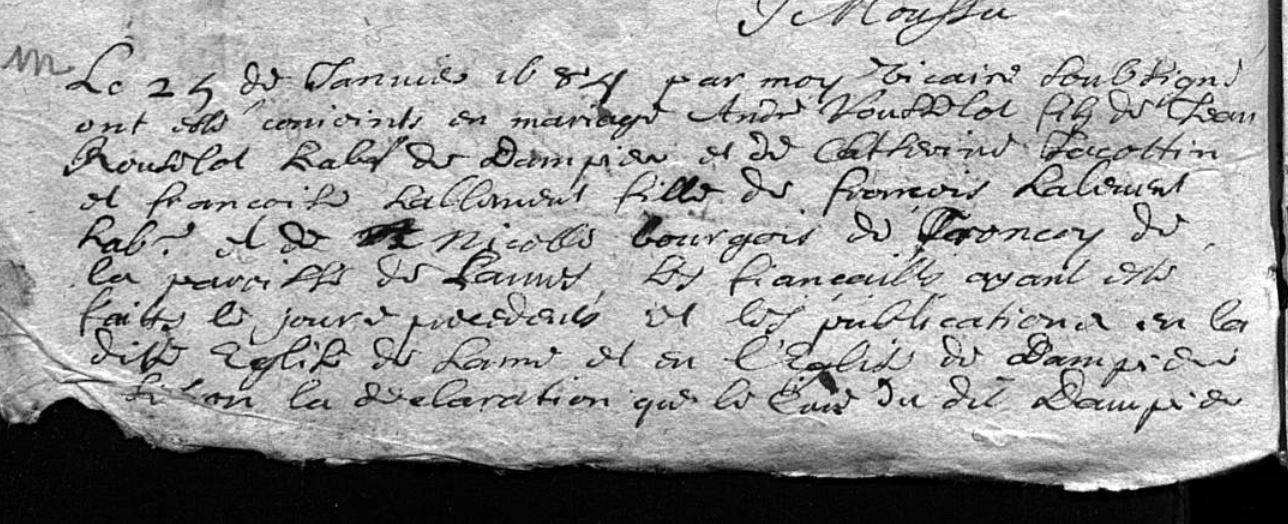 J Moussu
m
Le 25 de Januier 1684 par moy vicaire soubsigné
ont esté conioints en mariage André Rousselot fils de Jean
Rousselot hab^t de Dampier et de Catherine Jacottin
et francoise Lallement fille de francois Lalement
Lab^r et de Nicolle bourgois de Troncoy de
la parroisse de Lanne, les fiancailles ayant esté
faitte le jour precedent et les publications en la
ditte Eglise de Lanne et en l'Eglise de Dampier
selon la declaration que le Curé du dit Dampier